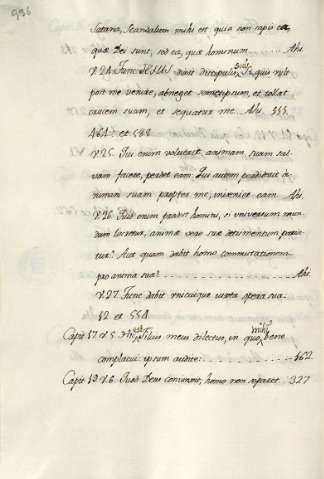 936
Satana, Scandalum mihi es: quia non sapis ea,
quæ Dei sunt, sed ea, quæ hominum ........ Ahi
V. 24. Tunc JESUS dixit discipulis suis, si quis vult
post me venire, abneget semetipsum, et tollat
crucem suam, et sequatur me. Ahi. 333
464. et 588
V. 25. Qui enim voluerit, animam suam sal-
vam facere, perdet eam: Qui autem perdiderit a-
nimam suam propter me, inveniet eam. Ahi
V. 26. Quid enim prodest homini, si universum mun-
dum lucretur, animæ vero suæ detrimentum patia-
tur? Aut quam dabit homo commutationem
pro anima sua? ........ Ahi
V. 27. Tunc dabit unicuique iuxta opera sua
12 et 554
Capit 17. V. 5. Hic est Filius meus dilectus, in quo mihi bene
complacui ipsum audite: ........ 462
Capit 19. V. 6. Quod Deus coniunxit, homo non separet. 327